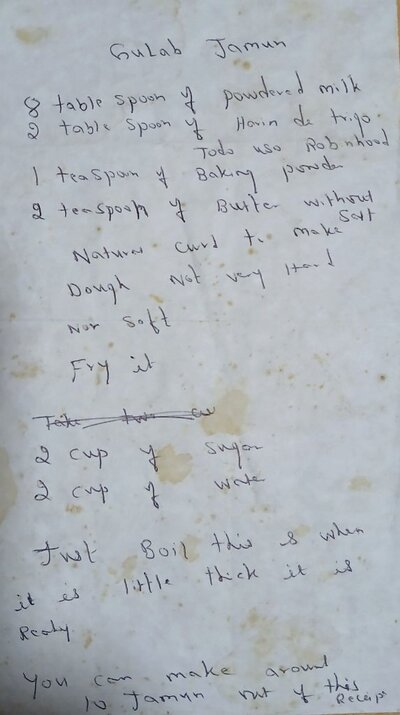 Gulab Jamun
8 table spoon of powdered milk
2 table spoon of Harin de trigo
Todo uso Robinhood
1 teaspoon of Baking powder
2 teaspoon of Butter without
Salt
Natural curd to make
Dough Not very Hard
Nor Soft
Fry it
Take two cu
2 cup of Sugar
2 cup of water
Just Boil this is when
it is little thick it is
Ready
You can make around
10 Jamun out of this
Receipe